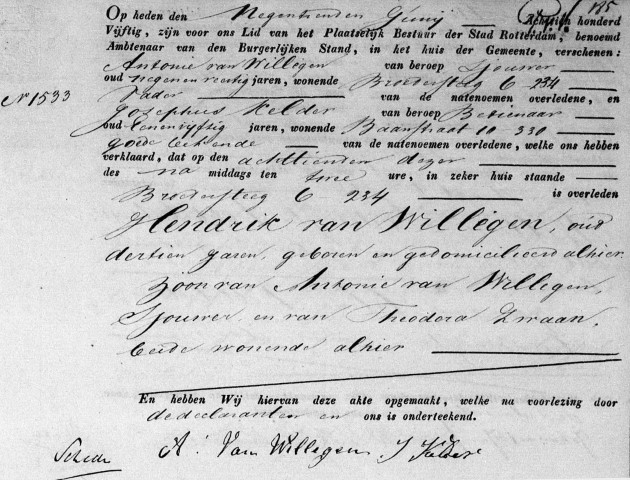 185
Op heden den Negentienden Junij Achttien honderd
Vijftig, zijn voor ons Lid van het Plaatselijk Bestuur der Stad Rotterdam, benoemd
Ambtenaar van den Burgerlijken Stand, in het huis der Gemeente, verschenen:
Antonie van Willegen van beroep Sjouwer
oud negen en veertig jaren, wonende Broedersteeg 6 234
No 1533
Vader van de natenoemen overledene, en
Josephus Kelder van beroep Bedienaar
oud eenenvijftig jaren, wonende Baanstraat 10 330
goede bekende van de natenoemen overledene, welke ons hebben
verklaard, dat op den achttienden dezer
des na middags ten twee ure, in zeker huis staande
Broedersteeg 6 234 is overleden
Hendrik van Willegen, oud
dertien jaren, geboren en gedomicilieerd alhier
Zoon van Antonie van Willegen,
Sjouwer, en van Theodora Zwaan,
beide wonende alhier
En hebben Wij hiervan deze akte opgemaakt, welke na voorlezing door
de declaranten en ons is onderteekend.
A: Van Willegen J Kelder